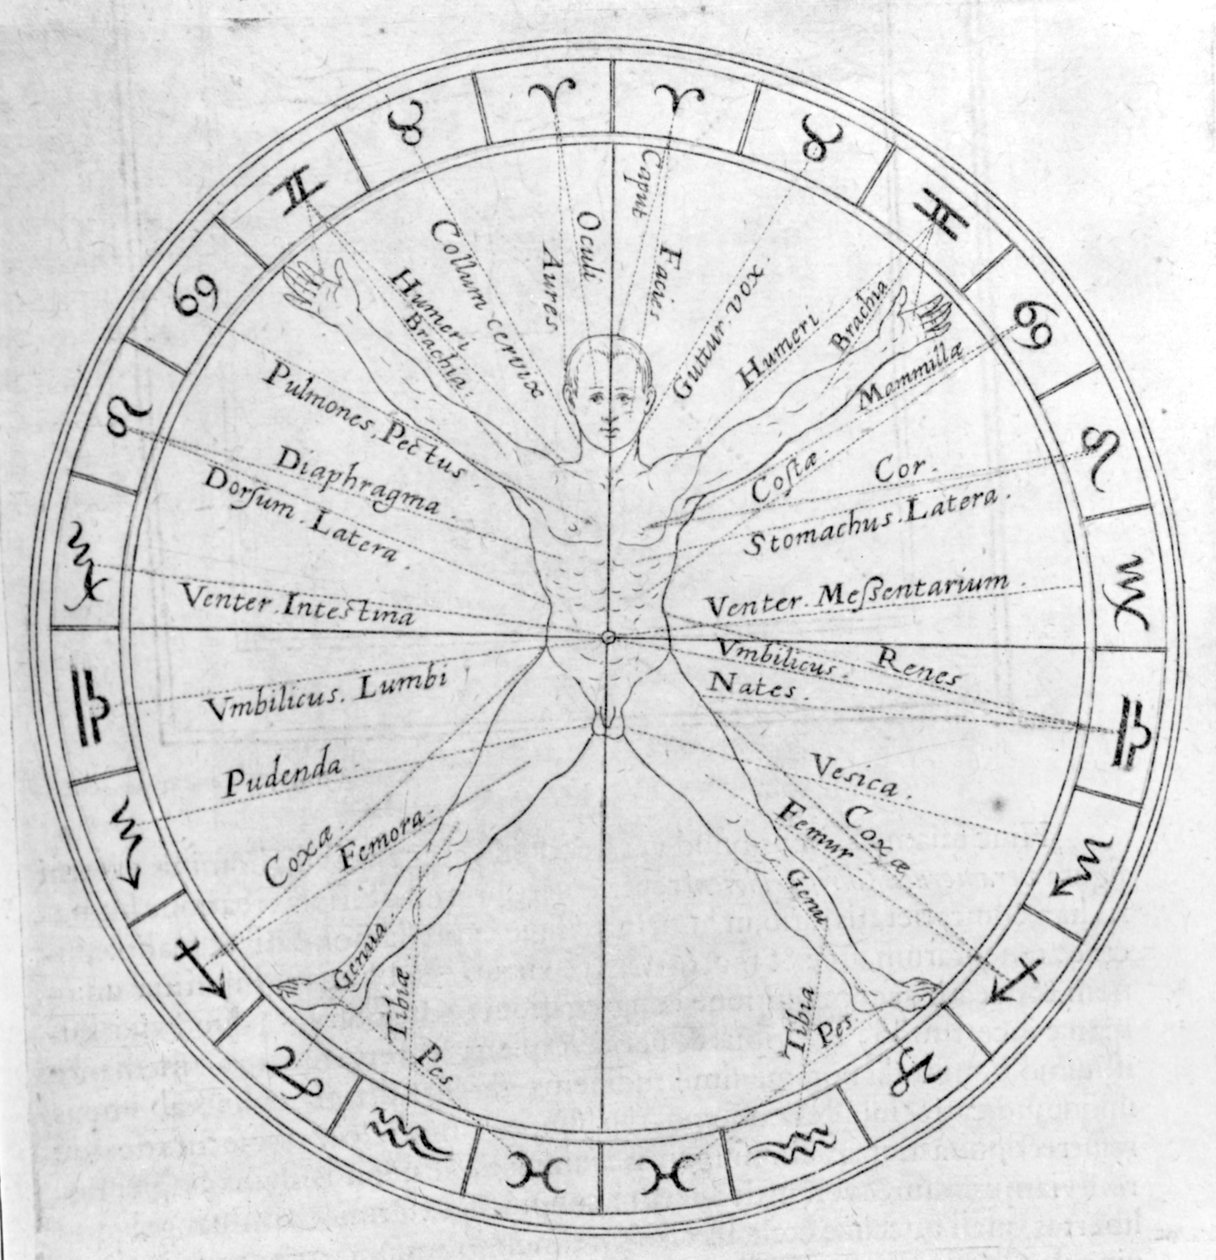 ♈ ♈
♉ ♉
♊ ♊
♋ ♋
♌ ♌
♍ ♍
♎ ♎
♏ ♏
♐ ♐
♑ ♑
♒ ♒
♓ ♓
Caput
Oculi
Aures
Facies
Collum cervix
Guttur. vox.
Humeri
Brachia.
Humeri
Brachia
Mammillæ
Pulmones. Pectus.
Costæ.
Cor.
Diaphragma.
Dorsum. Latera.
Stomachus. Latera.
Venter. Intestina
Venter. Messentarium.
Vmbilicus.
Renes
Nates.
Vmbilicus. Lumbi
Pudenda
Vesica.
Coxæ
Femora
Coxæ
Femur
Genua
Tibiæ
Pes
Genu
Tibia
Pes